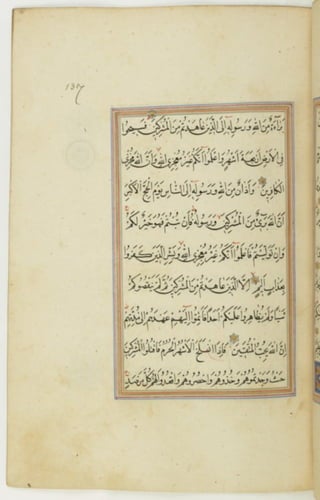 137
براءة من الله ورسوله إلى الذين عاهدتم من المشركين فسيحوا
في الأرض أربعة أشهر واعلموا أنكم غير معجزي الله وأن الله مخزي
الكافرين وأذان من الله ورسوله إلى الناس يوم الحج الأكبر
أن الله بريء من المشركين ورسوله فإن تبتم فهو خير لكم
وإن توليتم فاعلموا أنكم غير معجزي الله وبشر الذين كفروا
بعذاب أليم إلا الذين عاهدتم من المشركين ثم لم ينقصوكم
شيئا ولم يظاهروا عليكم أحدا فأتموا إليهم عهدهم إلى مدتهم
إن الله يحب المتقين فإذا انسلخ الأشهر الحرم فاقتلوا المشركين
حيث وجدتموهم وخذوهم واحصروهم واقعدوا لهم كل مرصد